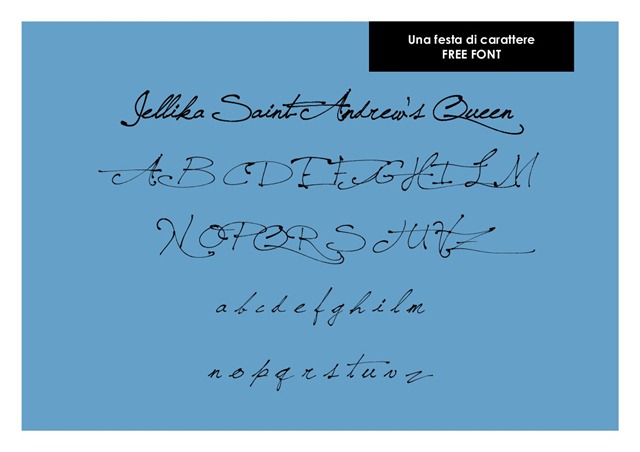 Una festa di carattere
FREE FONT
Jellika Saint-Andrew's Queen
A B C D E F G H I L M
N O P Q R S T U V Z
a b c d e f g h i l m
n o p q r s t u v z